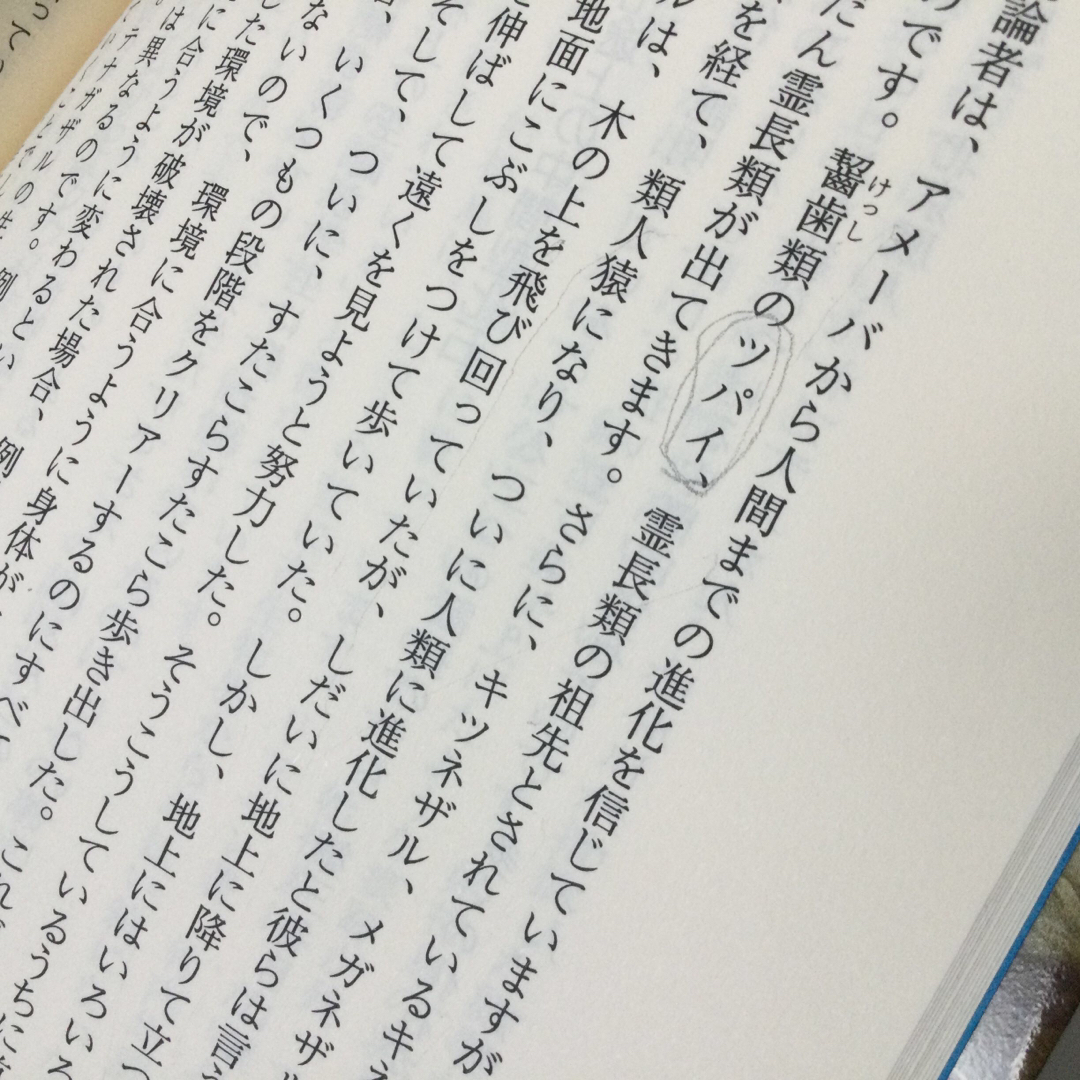 論者は、アメーバから人間までの進化を信じていますが
のです。齧歯類のツパイ、霊長類の祖先とされているキ
けっし
だん霊長類が出てきます。さらに、キツネザル、メガネザル
を経て、類人猿になり、ついに人類に進化したと彼らは言
ルは、木の上を飛び回っていたが、しだいに地上に降りて立つ
地面にこぶしをつけて歩いていた。しかし、地上にはいろいろ
と伸ばして遠くを見ようと努力した。そうこうしているうちに
そして、ついに、すたこらすたこら歩き出した。
いくつもの段階をクリアーするのにすべ
ないので、環境に合うように身体が
した環境が破壊された場合、例
に合うように変わるとい
は異なるのです。例